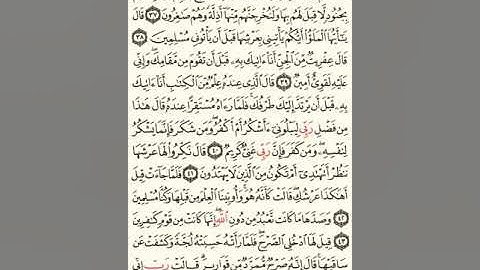 بِجُنُودٍ لَّا قِبَلَ لَهُم بِهَا وَلَنُخْرِجَنَّهُم مِّنْهَآ أَذِلَّةً وَهُمْ صَٰغِرُونَ ٣٧ قَالَ
يَٰٓأَيُّهَا ٱلْمَلَؤُا۟ أَيُّكُمْ يَأْتِينِى بِعَرْشِهَا قَبْلَ أَن يَأْتُونِى مُسْلِمِينَ ٣٨
قَالَ عِفْرِيتٌ مِّنَ ٱلْجِنِّ أَنَا۠ ءَاتِيكَ بِهِۦ قَبْلَ أَن تَقُومَ مِن مَّقَامِكَ ۖ وَإِنِّى
عَلَيْهِ لَقَوِىٌّ أَمِينٌ ٣٩ قَالَ ٱلَّذِى عِندَهُۥ عِلْمٌ مِّنَ ٱلْكِتَٰبِ أَنَا۠ ءَاتِيكَ
بِهِۦ قَبْلَ أَن يَرْتَدَّ إِلَيْكَ طَرْفُكَ ۚ فَلَمَّا رَءَاهُ مُسْتَقِرًّا عِندَهُۥ قَالَ هَٰذَا
مِن فَضْلِ رَبِّى لِيَبْلُوَنِىٓ ءَأَشْكُرُ أَمْ أَكْفُرُ ۖ وَمَن شَكَرَ فَإِنَّمَا يَشْكُرُ
لِنَفْسِهِۦ ۖ وَمَن كَفَرَ فَإِنَّ رَبِّى غَنِىٌّ كَرِيمٌ ٤٠ قَالَ نَكِّرُوا۟ لَهَا عَرْشَهَا
نَنظُرْ أَتَهْتَدِىٓ أَمْ تَكُونُ مِنَ ٱلَّذِينَ لَا يَهْتَدُونَ ٤١ فَلَمَّا جَآءَتْ قِيلَ
أَهَٰكَذَا عَرْشُكِ ۖ قَالَتْ كَأَنَّهُۥ هُوَ ۚ وَأُوتِينَا ٱلْعِلْمَ مِن قَبْلِهَا وَكُنَّا مُسْلِمِينَ
٤٢ وَصَدَّهَا مَا كَانَت تَّعْبُدُ مِن دُونِ ٱللَّهِ ۖ إِنَّهَا كَانَتْ مِن قَوْمٍ كَٰفِرِينَ
٤٣ قِيلَ لَهَا ٱدْخُلِى ٱلصَّرْحَ ۖ فَلَمَّا رَأَتْهُ حَسِبَتْهُ لُجَّةً وَكَشَفَتْ عَن
سَاقَيْهَا ۚ قَالَ إِنَّهُۥ صَرْحٌ مُّمَرَّدٌ مِّن قَوَارِيرَ ۗ قَالَتْ رَبِّ إِنِّى